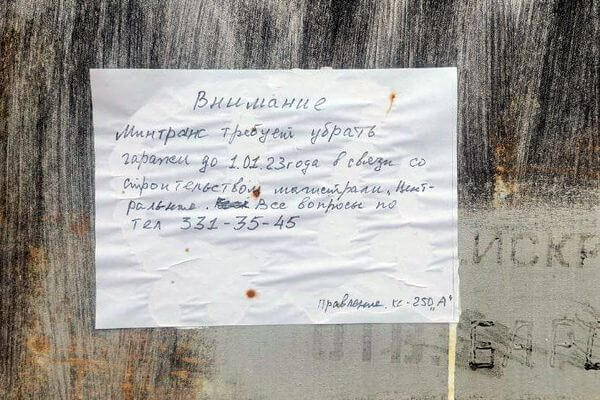 Внимание
Минтранс требует убрать
гаражи до 1.01.23года в связи со
строительством магистрали, Цент-
ральная. Все вопросы по
тел 331-35-45
Правление. кс-250„А"
ИСКР